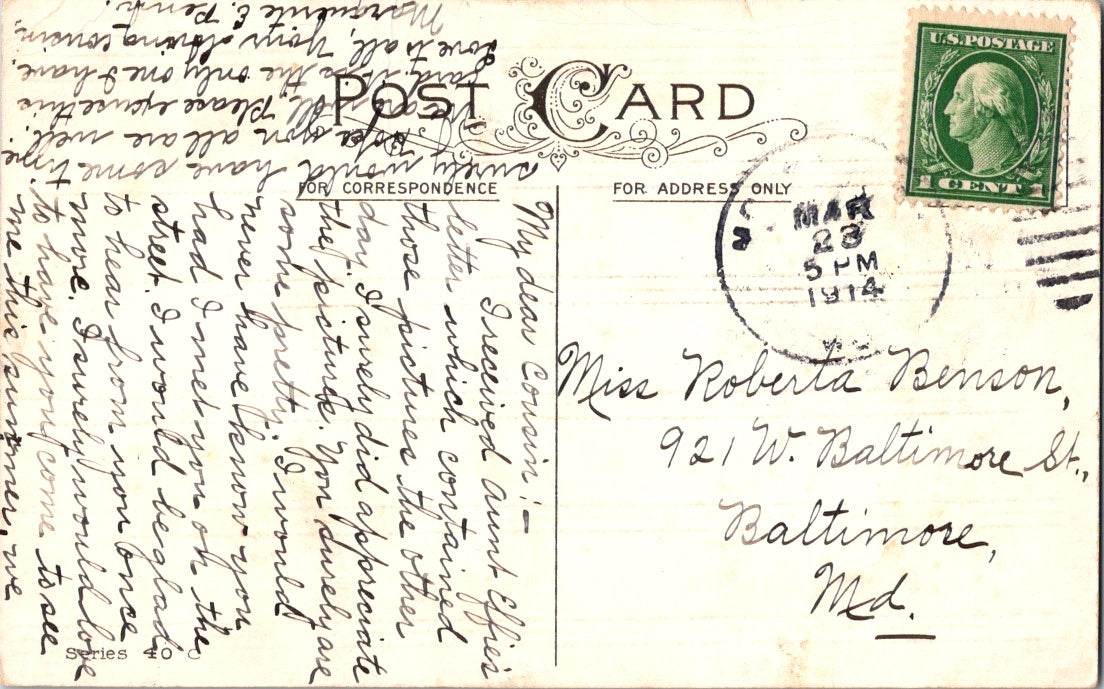 POST CARD
FOR CORRESPONDENCE
FOR ADDRESS ONLY
U.S. POSTAGE
1 CENT 1
MAR
23
5 PM
1914
Miss Roberta Benson,
921 W. Baltimore St.,
Baltimore,
Md.
My dear Cousin:-
I received aunt Effies
letter which contained
those pictures the other
day. I surely did appreciate
the picture. You surely are
some pretty. I would
never have know you
had I met you on the
street. I would be glad
to hear from you once
more. I surely would love
to have you come to see
me this summer, we
surely would have some time.
Hope you all are well.
Please excuse this
card, it is the only one I have.
Love to all, Your loving cousin,
Marguerite E. Penn.
Series 40 C